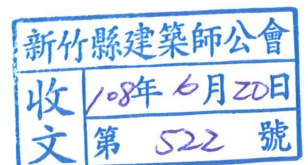 新竹縣建築師公會
收文
108年6月20日
第 522 號